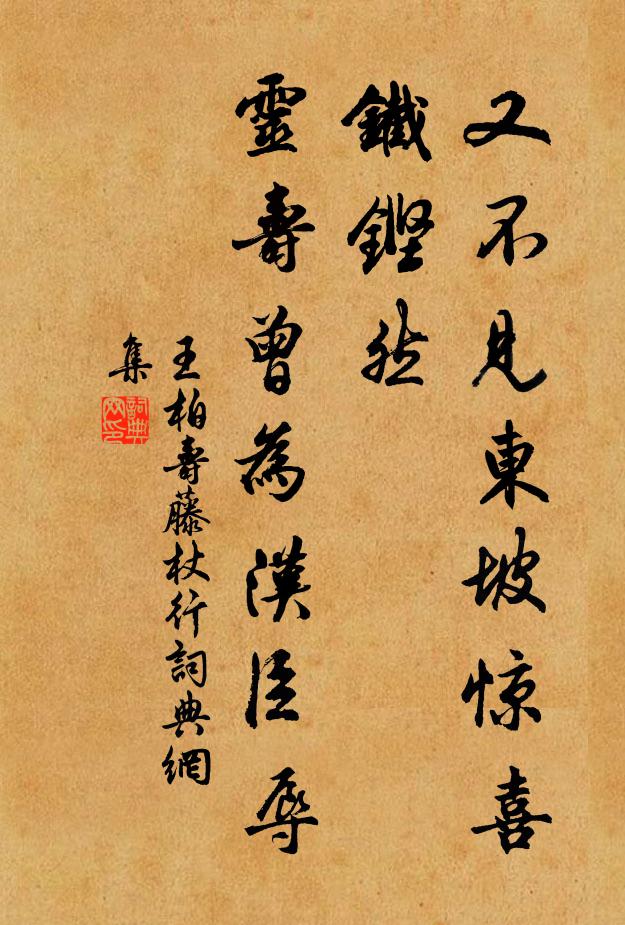 又不見東坡惊喜
鐵鏗然
靈壽曾為漢臣辱
王柏壽藤杖行詞典網
集
詞典
网印